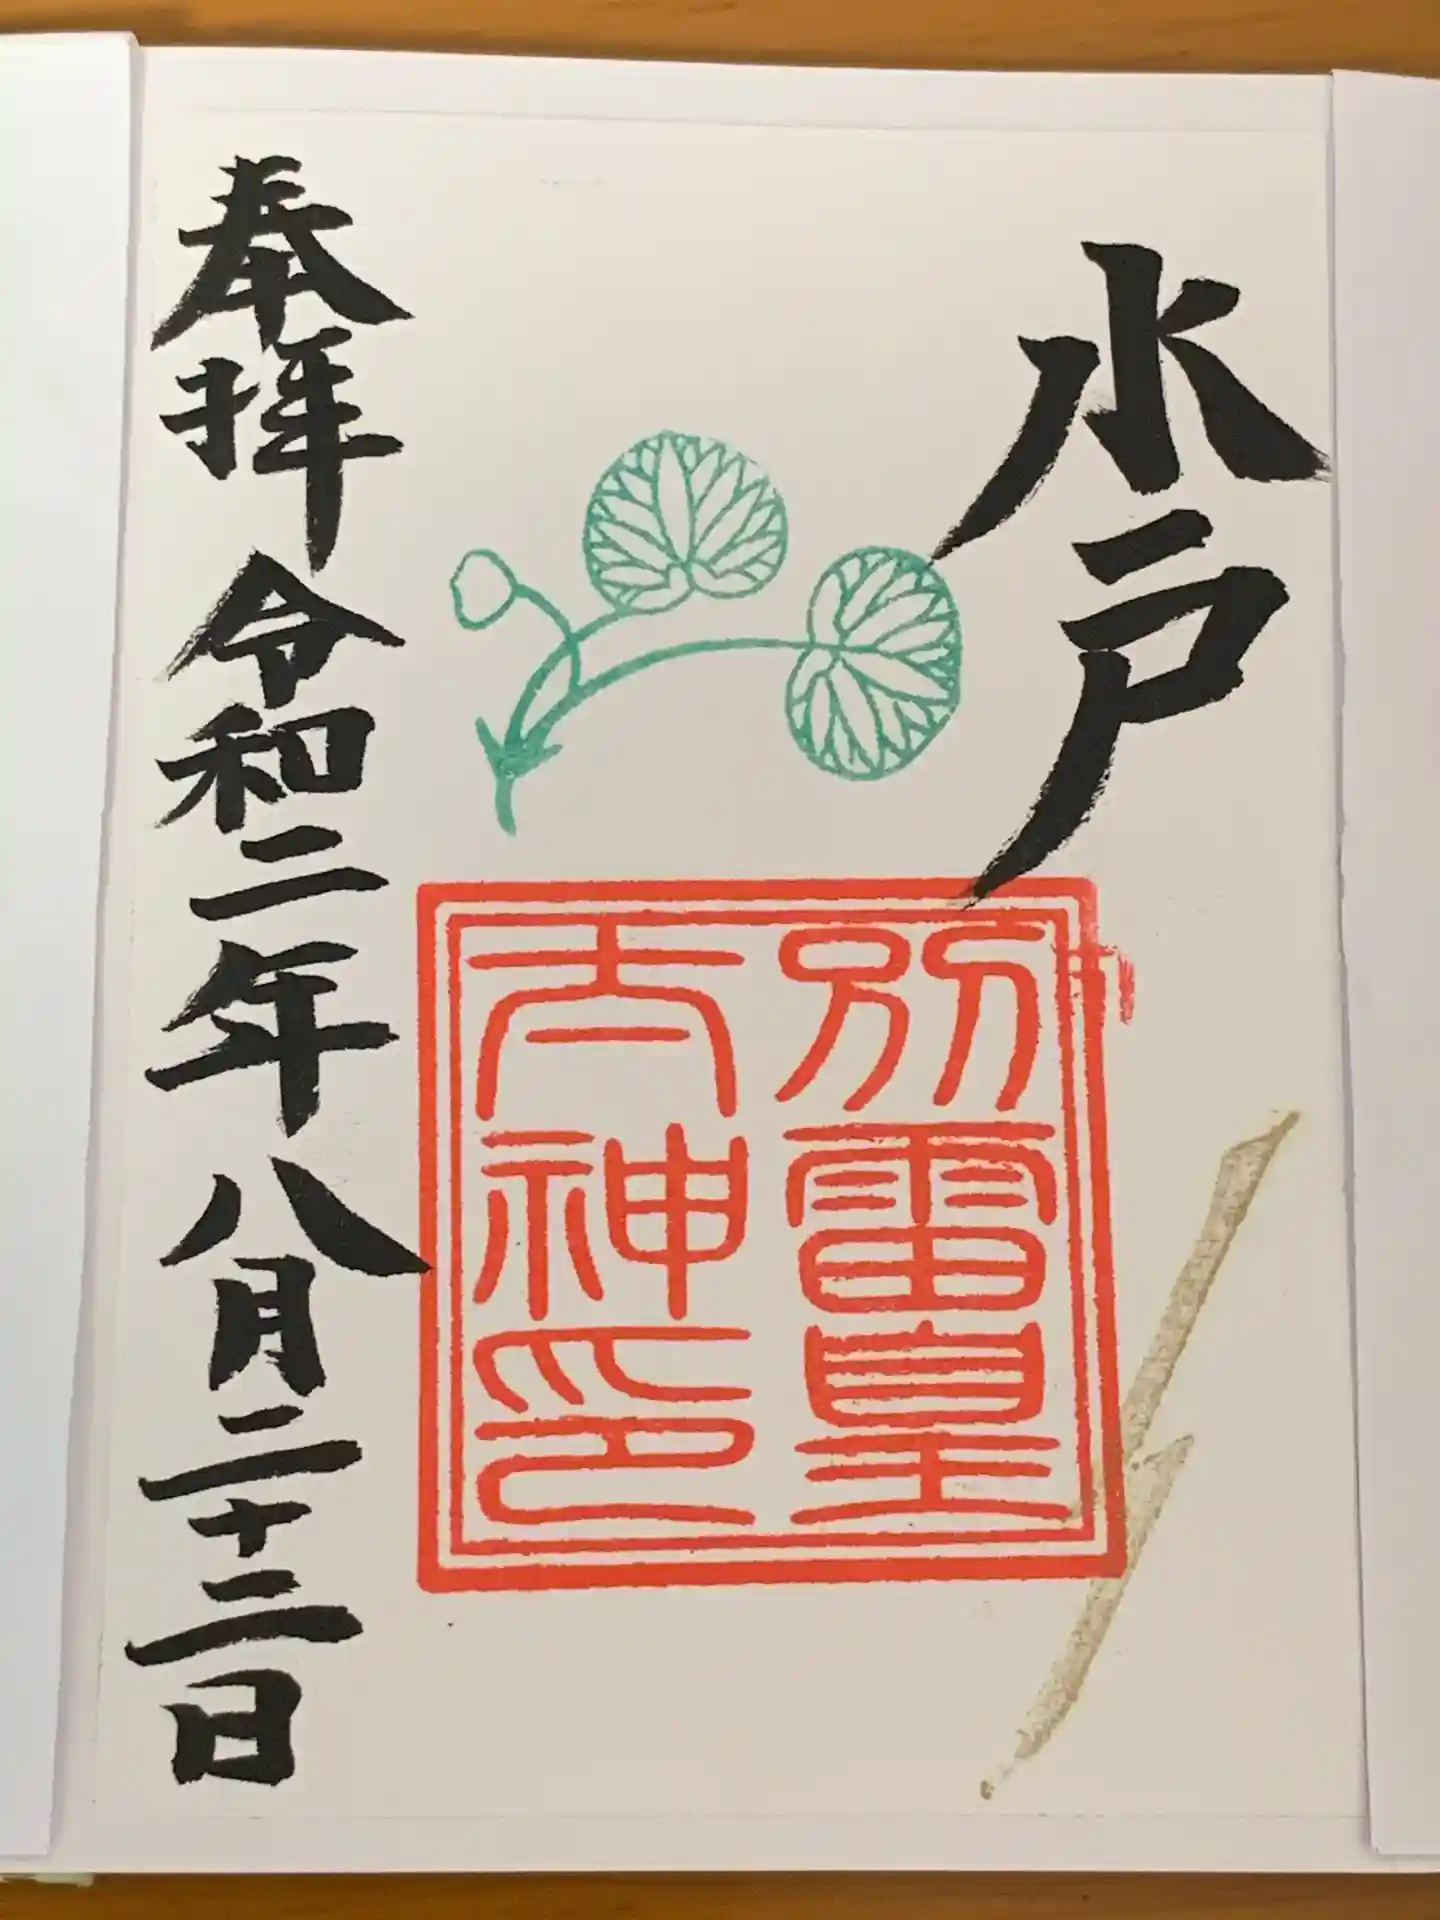 水戸
別雷皇
大神印
奉拝 令和二年 八月二十二日